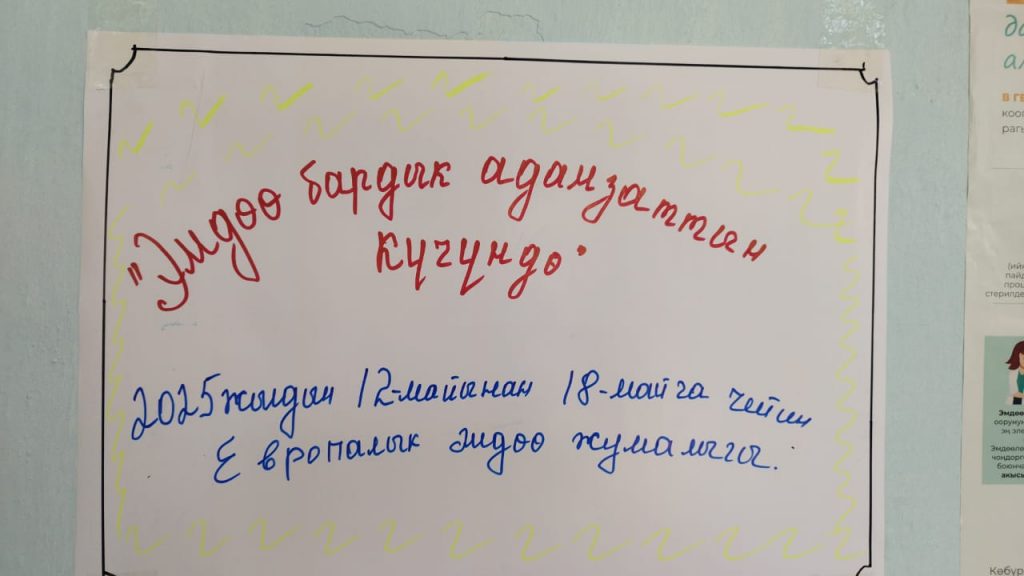 "Эмдөө бардык адамзаттын
күчүндө"
2025 жылдын 12-майынан 18-майга чейин
Европалык эмдөө жумалыгы.
В ГЕ
коо
рагы
(ий
пайд
проц
стерилде
Эмдөө
оорунун
эң эле
Эмдөөлө
чөндөрг
боюнча
акысы
Көбүр